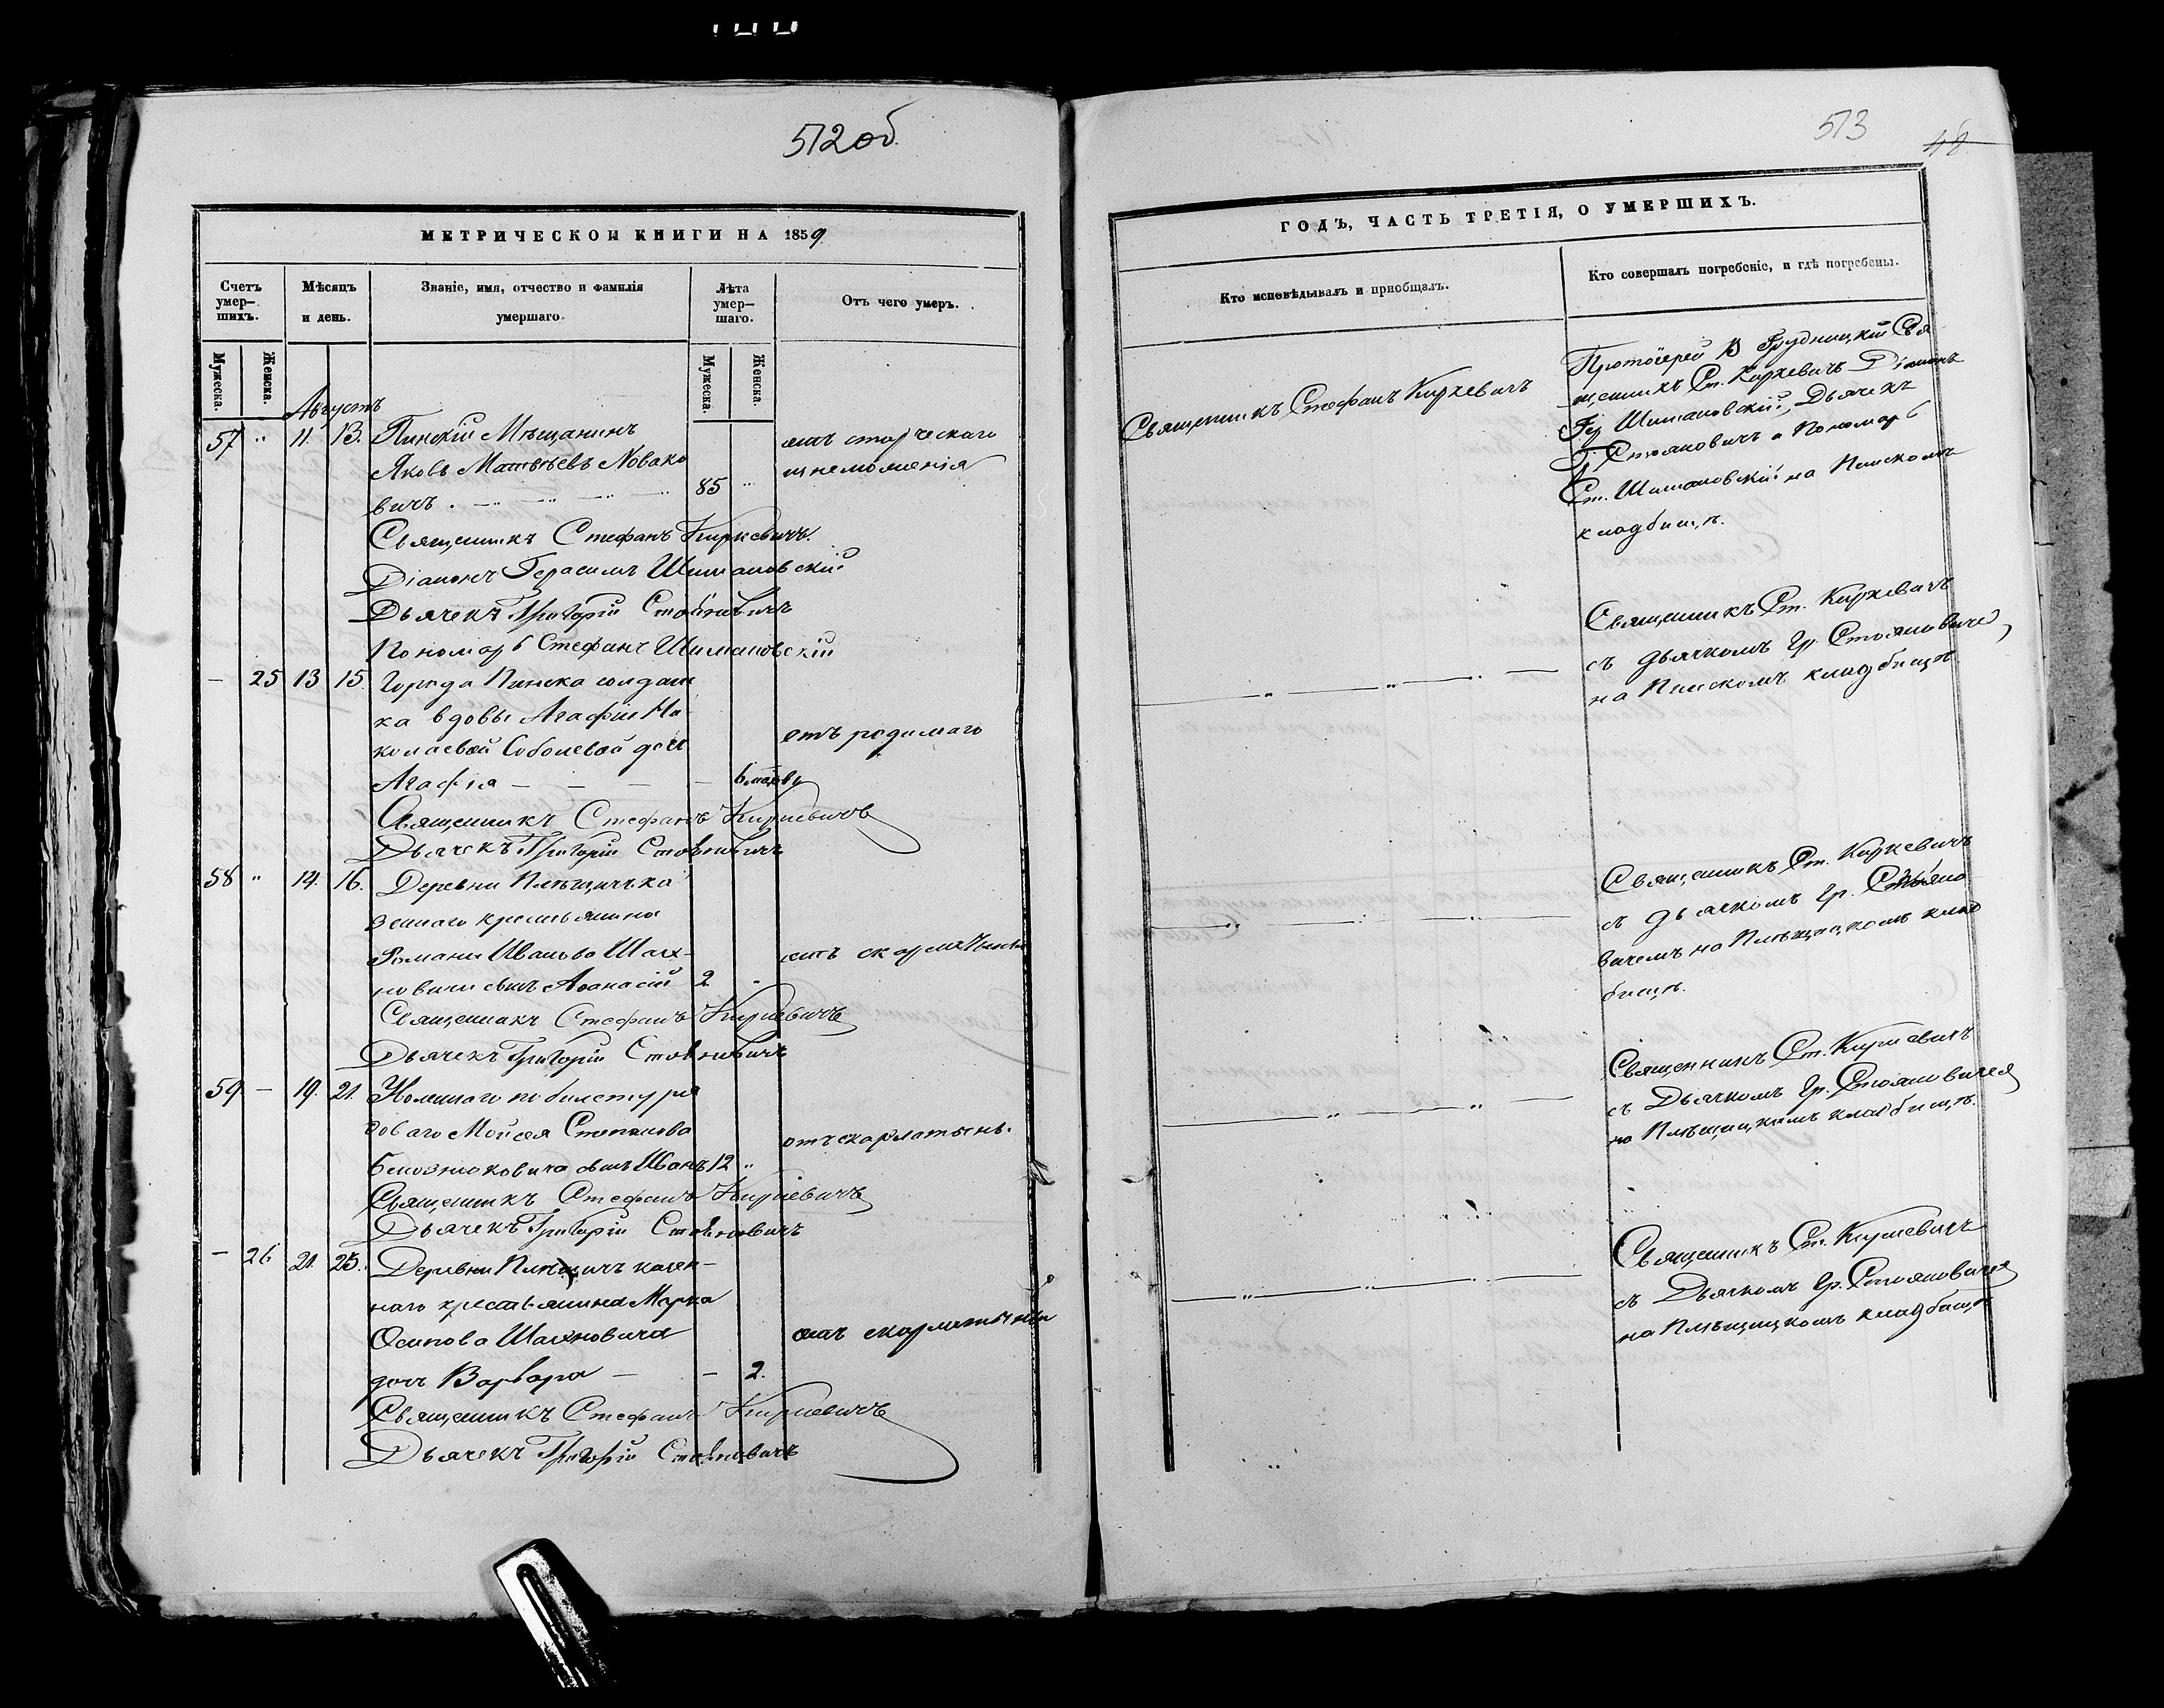 512об.
МЕТРИЧЕСКОЙ КНИГИ НА 1859
Счетъ умер-шихъ.
Мѣсяцъ и день.
Званіе, имя, отчество и фамилія умершаго.
Лѣта умер-шаго.
Отъ чего умеръ.
Мужеска.
Женска.
Мужеска.
Женска.
Августъ
57 " 11. 13. Пинскій Мѣщанинъ
отъ старческаго
Яковъ Матвѣевъ Новако
изнеможенія
вичъ . 85 "
Священникъ Стефанъ Киркевичъ.
Діаконъ Герасимъ Шимановскій
Дьячекъ Григорій Стояновичъ
Пономарь Стефанъ Шимановскій
— 25 13 15. Города Пинска солдат
ка вдовы Агафіи Ни
колаевой Соболевой дочь
отъ родимаго
Агафія — — — — 6 мѣсяцовъ
Священникъ Стефанъ Киркевичъ
Дьячекъ Григорій Стояновичъ
58 " 14. 16. Деревни Плещичъ ка
зеннаго крестьянина
Романа Иванова Шах-
отъ скарлатыны
новича сынъ Аѳанасій 2 "
Священникъ Стефанъ Киркевичъ
Дьячекъ Григорій Стояновичъ
59 — 19. 21. Уволеннаго по билету ря
доваго Мойсея Степанова
отъ скарлатыны.
сынъ Иванъ 12 "
Священникъ Стефанъ Киркевичъ
Дьячекъ Григорій Стояновичъ
— 26 21. 23. Деревни Плещичъ казен-
наго крестьянина Марка
Осипова Шахновича
отъ скарлатыны
дочь Варвара — — 2.
Священникъ Стефанъ Киркевичъ
Дьячекъ Григорій Стояновичъ
513
48
ГОДЪ, ЧАСТЬ ТРЕТІЯ, О УМЕРШИХЪ.
Кто исповѣдывалъ и пріобщалъ.
Кто совершалъ погребеніе, и гдѣ погребены.
Священникъ Стефанъ Киркевичъ
Протоіерей В Грудницкій Свя
щенникъ Ст. Киркевичъ Діаконъ
Гер Шимановскій, Дьячекъ
Г. Стояновичъ и Пономарь
Ст. Шимановскій на Пинскомъ
кладбищѣ.
Священникъ Ст. Киркевичъ
съ дьячкомъ Гр. Стояновичемъ
на Пинскомъ кладбищѣ
Священникъ Ст. Киркевичъ
съ дьячкомъ Гр. Стояно
вичемъ на Плѣщицкомъ клад
бищѣ.
Священникъ Ст. Киркевичъ
съ Дьячкомъ Гр. Стояновичемъ
на Плѣщицкомъ кладбищѣ.
Священникъ Ст. Киркевичъ
съ Дьячкомъ Гр. Стояновичемъ
на Плѣщицкомъ кладбищѣ